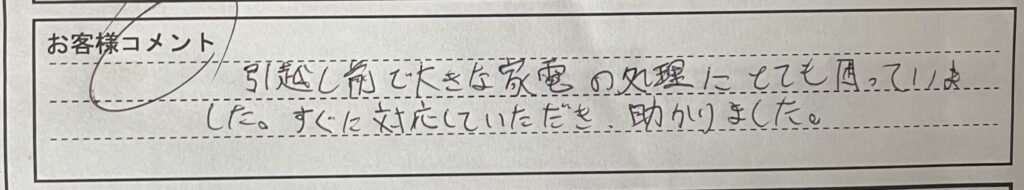 お客様コメント
引越し前で大きな家電の処理にとても困っていま
した。すぐに対応していただき、助かりました。